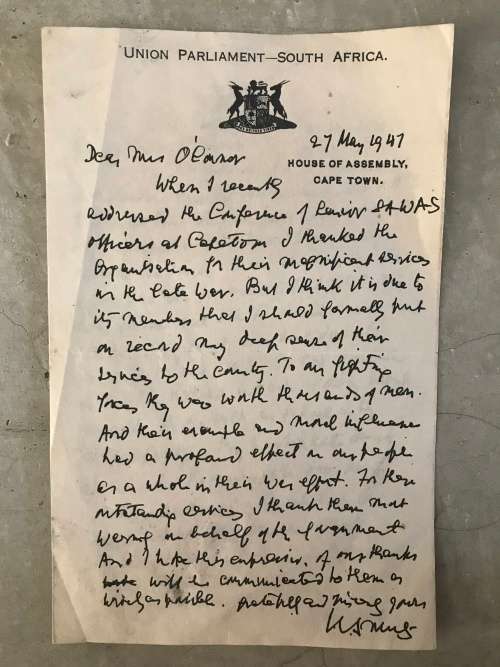 UNION PARLIAMENT—SOUTH AFRICA.
27 May 1947
HOUSE OF ASSEMBLY,
CAPE TOWN.
Dear Mrs O'Connor
When I recently
addressed the Conference of Senior SAWAS
officers at Capetown I thanked the
Organisation for their magnificent services
in the late War. But I think it is due to
its members that I should formally put
on record my deep sense of their
services to the country. To our fighting
forces they were worth thousands of men.
And their example and moral influence
had a profound effect on our people
as a whole in their war effort. For these
outstanding services I thank them most
warmly on behalf of the Government
And I hope this expression of our thanks
will be communicated to them as
widely as possible. gratefully and sincerely yours
JC Smuts